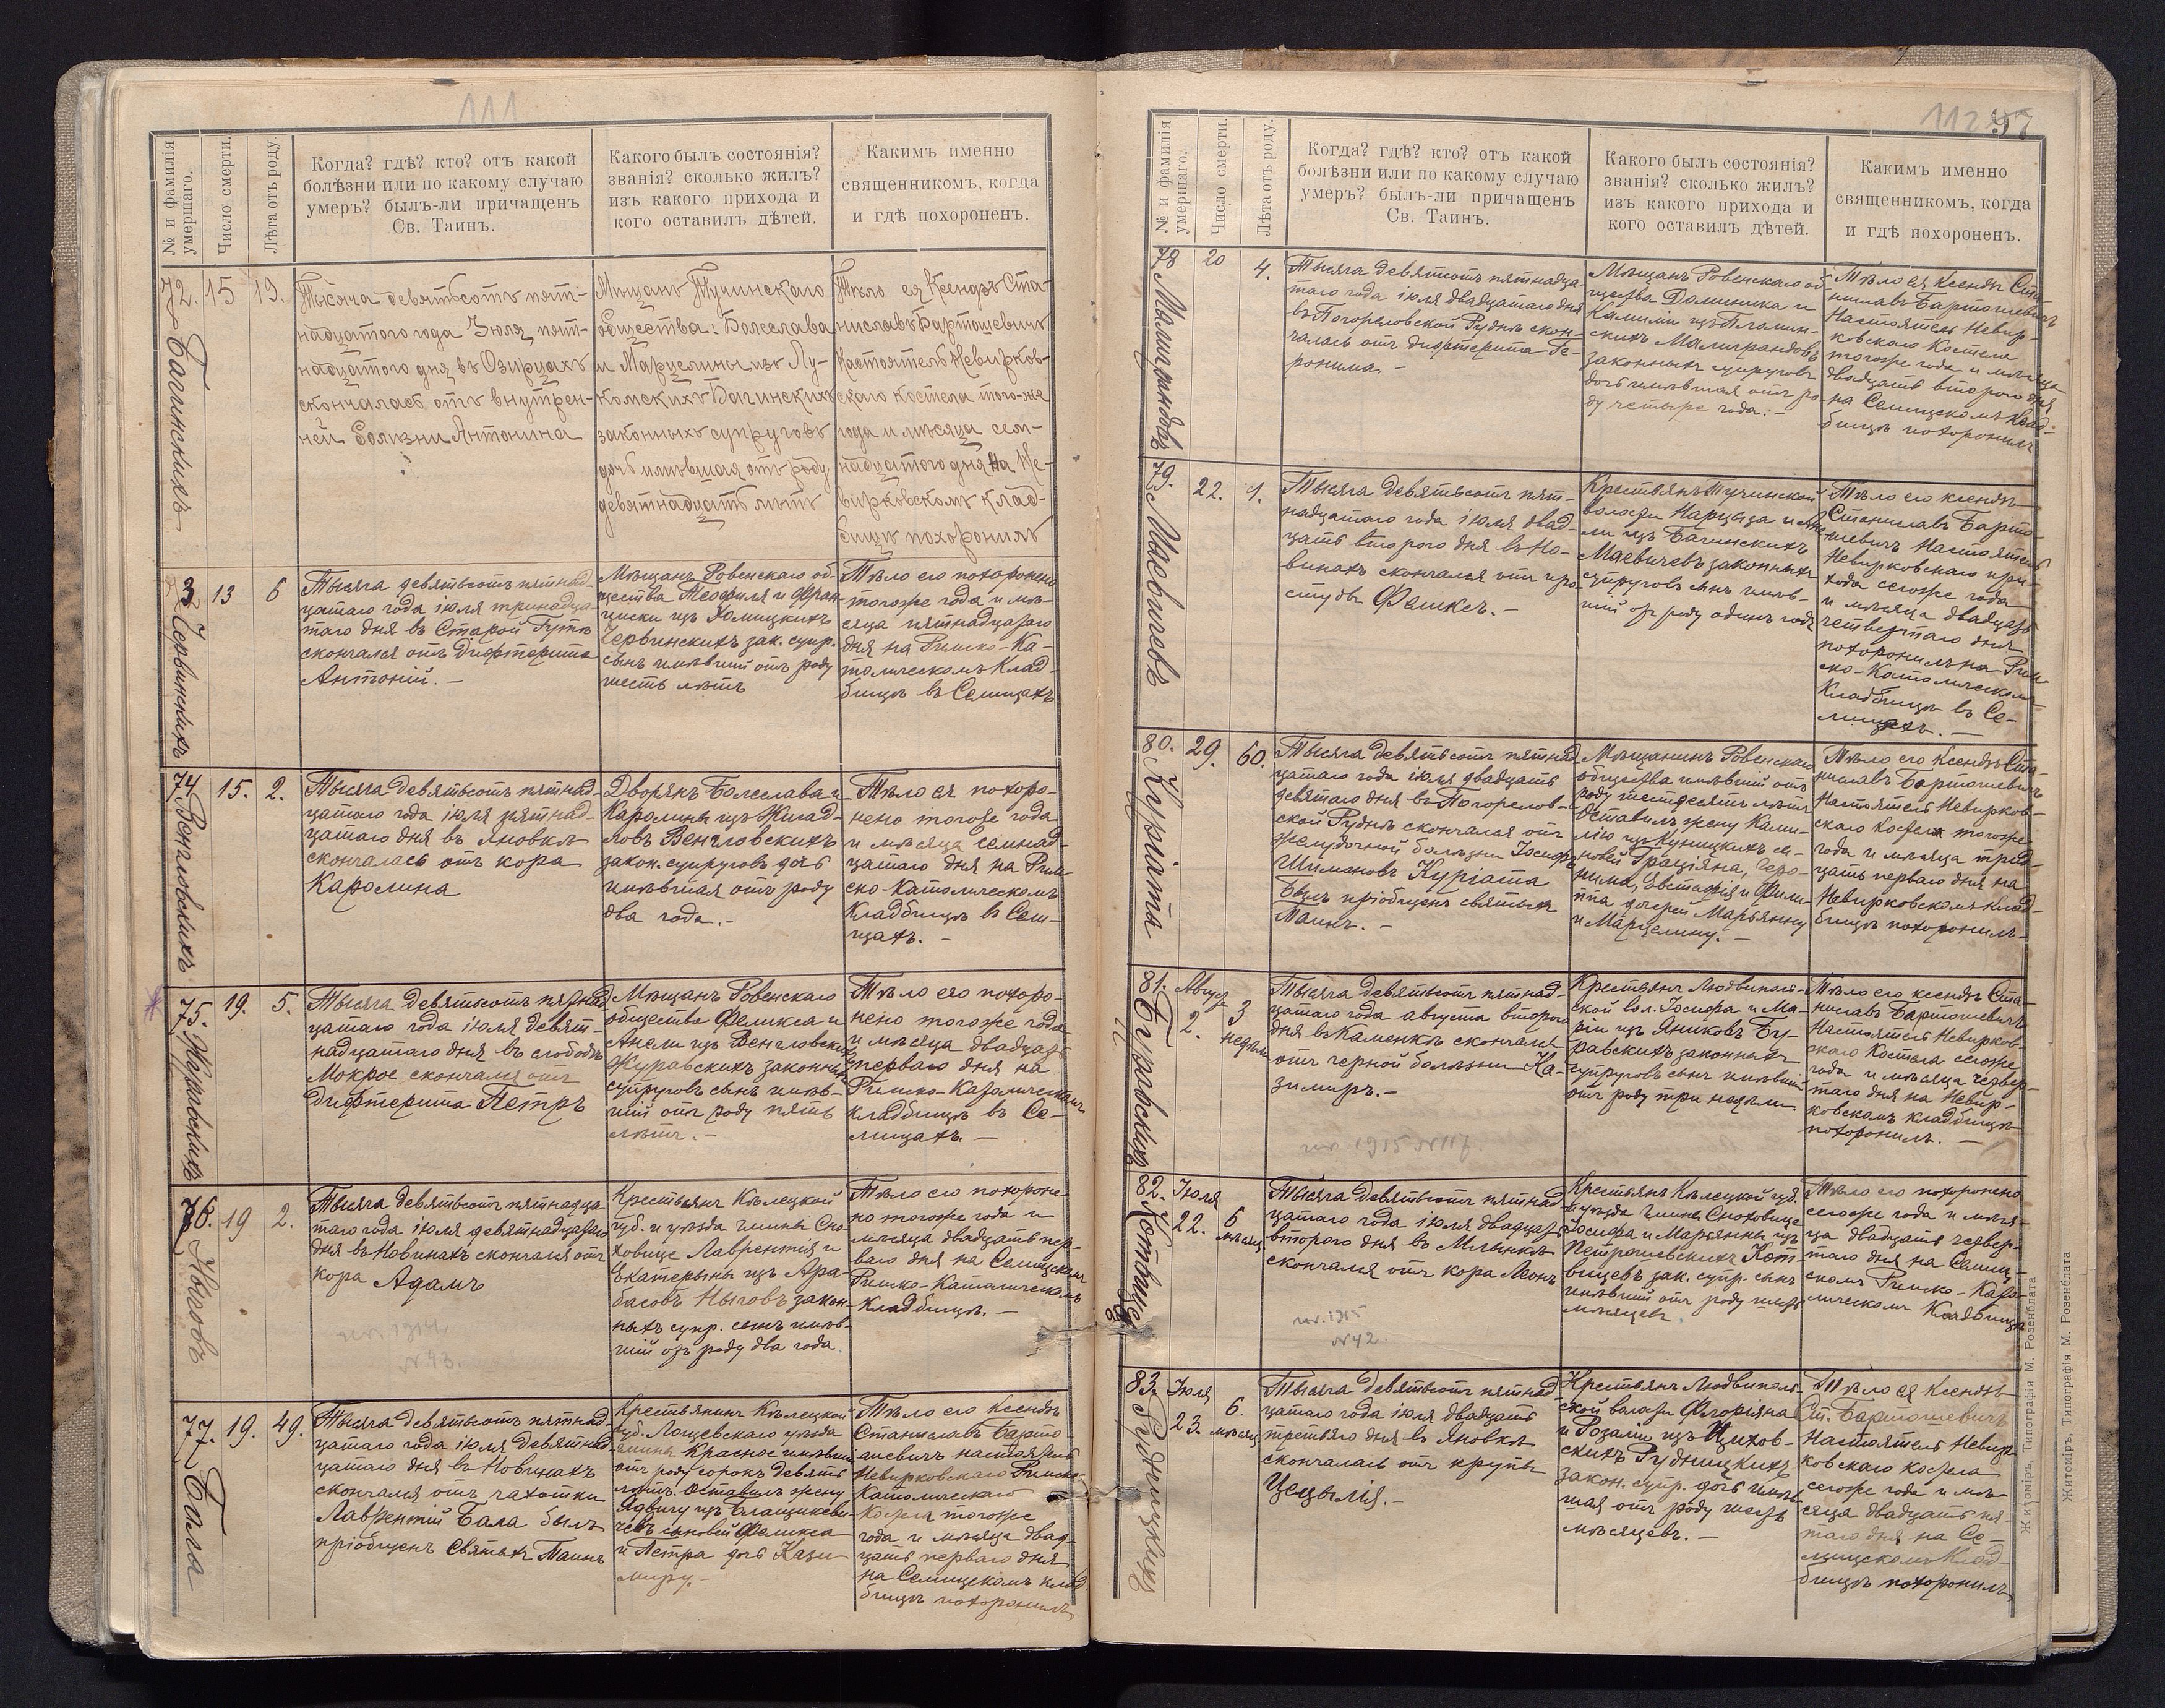 111
№ и фамилія умершаго.
Число смерти.
Лѣта отъ роду.
Когда? гдѣ? кто? отъ какой
болѣзни или по какому случаю
умеръ? былъ-ли причащенъ
Св. Таинъ.
Какого былъ состоянія?
званія? сколько жилъ?
изъ какого прихода и
кого оставилъ дѣтей.
Какимъ именно
священникомъ, когда
и гдѣ похороненъ.
72. Багинскихъ
15
19.
Тысяча девятьсотъ пят-
надцатого года Іюля пят-
надцатого дня въ Озирцахъ
скончалась отъ внутрен-
ней болизни Антонина
Мещанъ Тучинскаго
общества: Болеслава
и Марцелины изъ Лу-
комскихъ Багинскихъ
законныхъ супруговъ
дочь имѣвшая отъ роду
девятнадцать лѣтъ
Тѣло ея Ксендзъ Ста-
ниславъ Бартошевичъ
Настоятель Невирков-
скаго костела того-же
года и мѣсяца сем-
надцатого дня на Не-
вирковскомъ клад-
бищѣ похоронилъ
73 Червинскихъ
13
6
Тысяча девятьсотъ пятнад-
цатаго года іюля тринадца-
таго дня въ Старой Гутѣ
скончался отъ дифтерита
Антоній. —
Мѣщанъ Ровенскаго об-
щества Теофиля и Фран-
циски изъ Хомицкихъ
Червинскихъ зак. супр.
сынъ имѣвшій отъ роду
шесть лѣтъ
Тѣло его похоронено
тогоже года и мѣ-
сяца пятнадцатаго
дня на Римско-Ка-
толическомъ Клад-
бищѣ въ Селищахъ
74 Венгловскихъ
15.
2.
Тысяча девятьсотъ пятнад-
цатаго года іюля пятнад-
цатаго дня въ Яновкѣ
скончалась отъ кора
Каролина
Дворянъ Болеслава и
Каролины изъ Жилад-
ловъ Венгловскихъ
закон. супруговъ дочь
имѣвшая отъ роду
два года.-
Тѣло ея похоро-
нено тогоже года
и мѣсяца семнад-
цатаго дня на Рим-
ско-католическомъ
Кладбищѣ въ Сели-
щахъ. —
75. Журавскихъ
19.
5.
Тысяча девятьсотъ пятнад-
цатаго года іюля девят-
надцатаго дня въ слободѣ
Мокрое скончался отъ
дифтерита Петръ
Мѣщанъ Ровенскаго
общества Феликса и
Анели изъ Венгловскихъ
Журавскихъ законныхъ
супруговъ сынъ имѣв-
шій отъ роду пять
лѣтъ.-
Тѣло его похоро-
нено тогоже года
и мѣсяца двадцать
перваго дня на
Римско-Католическомъ
кладбищѣ въ Се-
лищахъ. —
76. Ныговъ
19
2.
Тысяча девятьсотъ пятнадца
таго года іюля девятнадцатаго
дня въ Новинахъ скончался отъ
кора Адамъ
1914.
№ 43.
Крестьянъ Кѣлецкой
губ. и уѣзда гмины Сно-
ховице Лаврентія и
Екатерины изъ Ара-
басовъ Ныговъ закон-
ныхъ супр. сынъ имѣв-
шій отъ роду два года.
Тѣло его похороне-
но тогоже года и
мѣсяца двадцать пер-
ваго дня на Селищскомъ
Римско-Католическомъ
Кладбищѣ. —
77. Бала
19.
49.
Тысяча девятьсотъ пятнад-
цатаго года іюля девятнад-
цатаго дня въ Новинахъ
скончался отъ чахотки
Лаврентій Бала былъ
пріобщенъ Святыхъ Таинъ
Крестьянинъ Кѣлецкой
губ. Лощевскаго уѣзда
гмины Красное имѣвшій
отъ роду сорокъ девять
лѣтъ. Оставилъ жену
Ядвигу изъ Блащикеви-
чевъ сыновей Феликса
и Петра дочь Кази-
миру.-
Тѣло его Ксендзъ
Станиславъ Барто-
шевичъ настоятель
Невирковскаго Римско-
Католическаго
Костела тогоже
года и мѣсяца двад-
цать перваго дня
на Селищскомъ клад-
бищѣ похоронилъ
112
97
№ и фамилія умершаго.
Число смерти.
Лѣта отъ роду.
Когда? гдѣ? кто? отъ какой
болѣзни или по какому случаю
умеръ? былъ-ли причащенъ
Св. Таинъ.
Какого былъ состоянія?
званія? сколько жилъ?
изъ какого прихода и
кого оставилъ дѣтей.
Какимъ именно
священникомъ, когда
и гдѣ похороненъ.
78 Малиграндовъ
20
4.
Тысяча девятьсотъ пятнадца
таго года іюля двадцатаго дня
въ Погореловской Руднѣ скон-
чалась отъ дифтерита Ге-
ронима. —
Мѣщанъ Ровенскаго об-
щества Доминика и
Камиліи изъ Пламин-
скихъ Малиграндовъ
законныхъ супруговъ
дочь имѣвшая отъ ро-
ду четыре года.-
Тѣло ея Ксендзъ Ста-
ниславъ Бартошевичъ
Настоятель Невир-
ковскаго Костела
тогоже года и мѣсяца
двадцать второго дня
на Селищскомъ Клад-
бищѣ похоронилъ
79. Маевичевъ
22.
1.
Тысяча девятьсотъ пят-
надцатаго года іюля двад-
цать второго дня въ Но-
винахъ скончался отъ про
студы Феликсъ. —
Крестьянъ Тучинской
волости Нарциза и Ане-
ли изъ Багинскихъ
Маевичевъ законныхъ
супруговъ сынъ имѣв-
шій отъ роду одинъ годъ
Тѣло его ксендзъ
Станиславъ Барто-
шевичъ Настоятель
Невирковскаго при-
хода сегоже года
и мѣсяца двадцать
четвертаго дня
похоронилъ на Рим-
ско-Католическомъ
Кладбищѣ въ Се-
лищахъ. —
80. Куріата
29.
60.
Тысяча девятьсотъ пятнад
цатаго года іюля двадцать
девятаго дня въ Погорелов-
ской Руднѣ скончался отъ
желудочной болѣзни Іосифъ
Шимоновъ Куріата
Былъ пріобщенъ святыхъ
Таинъ. —
Мѣщанинъ Ровенскаго
общества имѣвшій отъ
роду шестдесятъ лѣтъ
Оставилъ жену Ками-
лію изъ Куницкихъ сы-
новей Граціяна, Геро-
нима, Евстафія и Фили-
ппа дочерей Марьянну
и Марцелину. —
Тѣло его Ксендзъ Ста-
ниславъ Бартошевичъ
Настоятель Невирков-
скаго Костела тогоже
года и мѣсяца трид-
цать перваго дня на
Невирковскомъ Клад-
бищѣ похоронилъ-
81. Буравскихъ
Август
2.
3
недѣли
Тысяча девятьсотъ пятнад-
цатаго года августа второго
дня въ Каменкѣ скончался
отъ черной болѣзни Ка-
зимиръ.-
1915 № 117.
Крестьянъ Людвиполь-
ской вол. Іосифа и Ма-
ріи изъ Яниковъ Бу-
равскихъ законныхъ
супруговъ сынъ имѣвшій
отъ роду три недѣли
Тѣло его ксендзъ Ста-
ниславъ Бартошевичъ
Настоятель Невирков-
скаго Костела сегоже
года и мѣсяца четвер-
таго дня на Невир-
ковскомъ кладбищѣ
похоронилъ. —
82. Котвице
Іюля
22.
6
мѣсяц
Тысяча девятьсотъ пятнад
цатаго года іюля двадцать
второго дня въ Млынкѣ
скончался отъ кора Леонъ
1915
№ 42.
Крестьянъ Кѣлецкой губ.
и уѣзда гмины Сноховице
Іосифа и Марьянны изъ
Петрашевскихъ Кот-
вицевъ зак. супр. сынъ
имѣвшій отъ роду шесть
мѣсяцевъ.
Тѣло его похоронено
сегоже года и мѣся-
ца двадцать четвер-
таго дня на Селищ-
скомъ Римско-Като-
лическомъ Кладбищѣ
83. Рудницкихъ
Іюля
23.
6.
мѣсяц
Тысяча девятьсотъ пятнад
цатаго года іюля двадцать
третьяго дня въ Яновкѣ
скончалась отъ крупы
Цецылія.-
Крестьянъ Людвиполь-
ской волости Флоріяна
и Розаліи изъ Цихов-
скихъ Рудницкихъ
закон. супр. дочь имѣв-
шая отъ роду шесть
мѣсяцевъ. —
Тѣло ея Ксендзъ
Ст. Бартошевичъ
Настоятель Невир-
ковскаго костела
сегоже года и мѣ-
сяца двадцать пя-
таго дня на Се-
лищскомъ Клад-
бищѣ похоронилъ
Житоміръ, Типографія М. Розенблата
Житоміръ, Типографія М. Розенблата